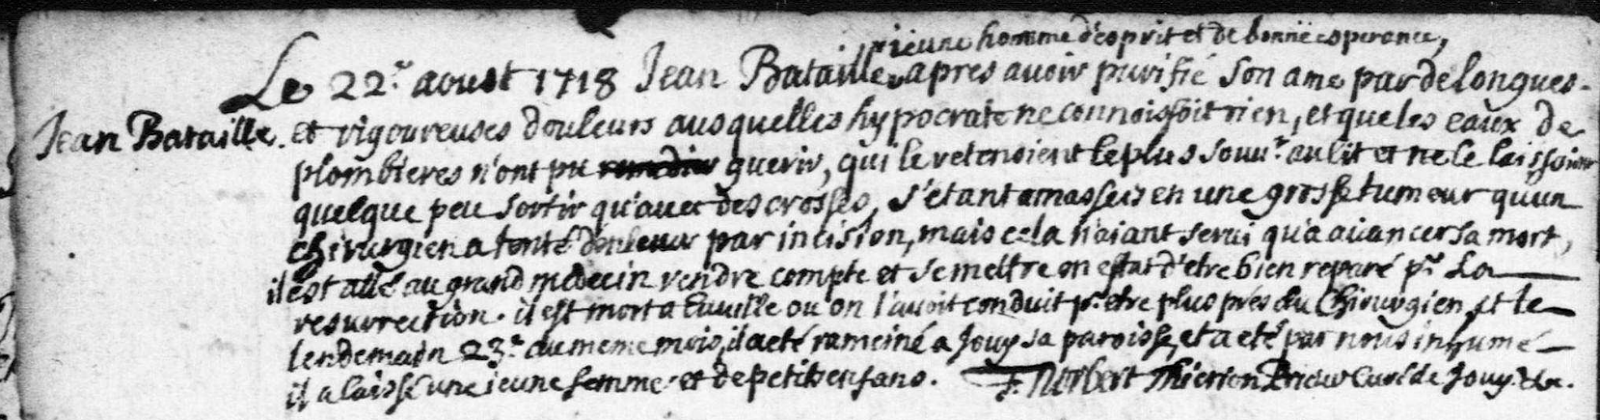 jeune homme d'esprit et de bonne esperance,
Le 22.e aoust 1718 Jean Bataille apres avoir purifié son ame par de longues
Jean Bataille. et rigoureuses douleurs ausquelles hypocrate ne connoissoit rien, et que les eaux de
plombieres n'ont pu guerir, qui le retenoient le plus souv.t au lit et ne le laissoient
quelque peu sortir qu'avec des crosses, s'étant amassées en une grosse tumeur qu'un
chirurgien a tenté d'enlever par incision, mais cela n'aiant servi qu'a avancer sa mort,
il est allé au grand medecin rendre compte et se mettre en estat d'etre bien reparé p.r La
resurrection. il est mort a Euville ou on l'avoit conduit p.r etre plus près du Chirurgien, et le
lendemain 23.e du meme mois, il a eté rameiné a Jouy sa paroisse, et a eté par nous inhumé
il a laissé une jeune femme et de petits enfans. F. Norbert Thierion Prieur Curé de Jouy &c.